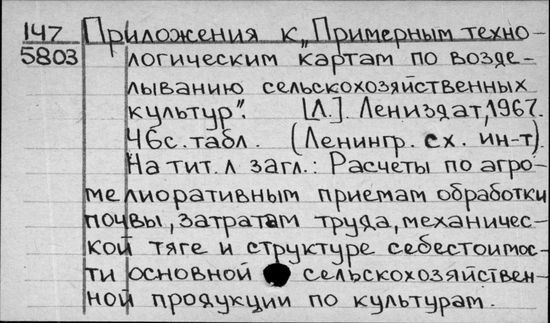 147 Приложения к „Примерным техно-
5803 логическим картам по возде-
лыванию сельскохозяйственных
культур". [Л.]. Лениздат, 1967.
46с. табл. (Ленингр. сх. ин-т).
На тит. л загл.: Расчеты по агро-
мелиоративным приемам обработки
почвы, затратам труда, механичес-
кой тяге и структуре себестоимос-
ти основной сельскохозяйствен-
ной продукции по культурам.